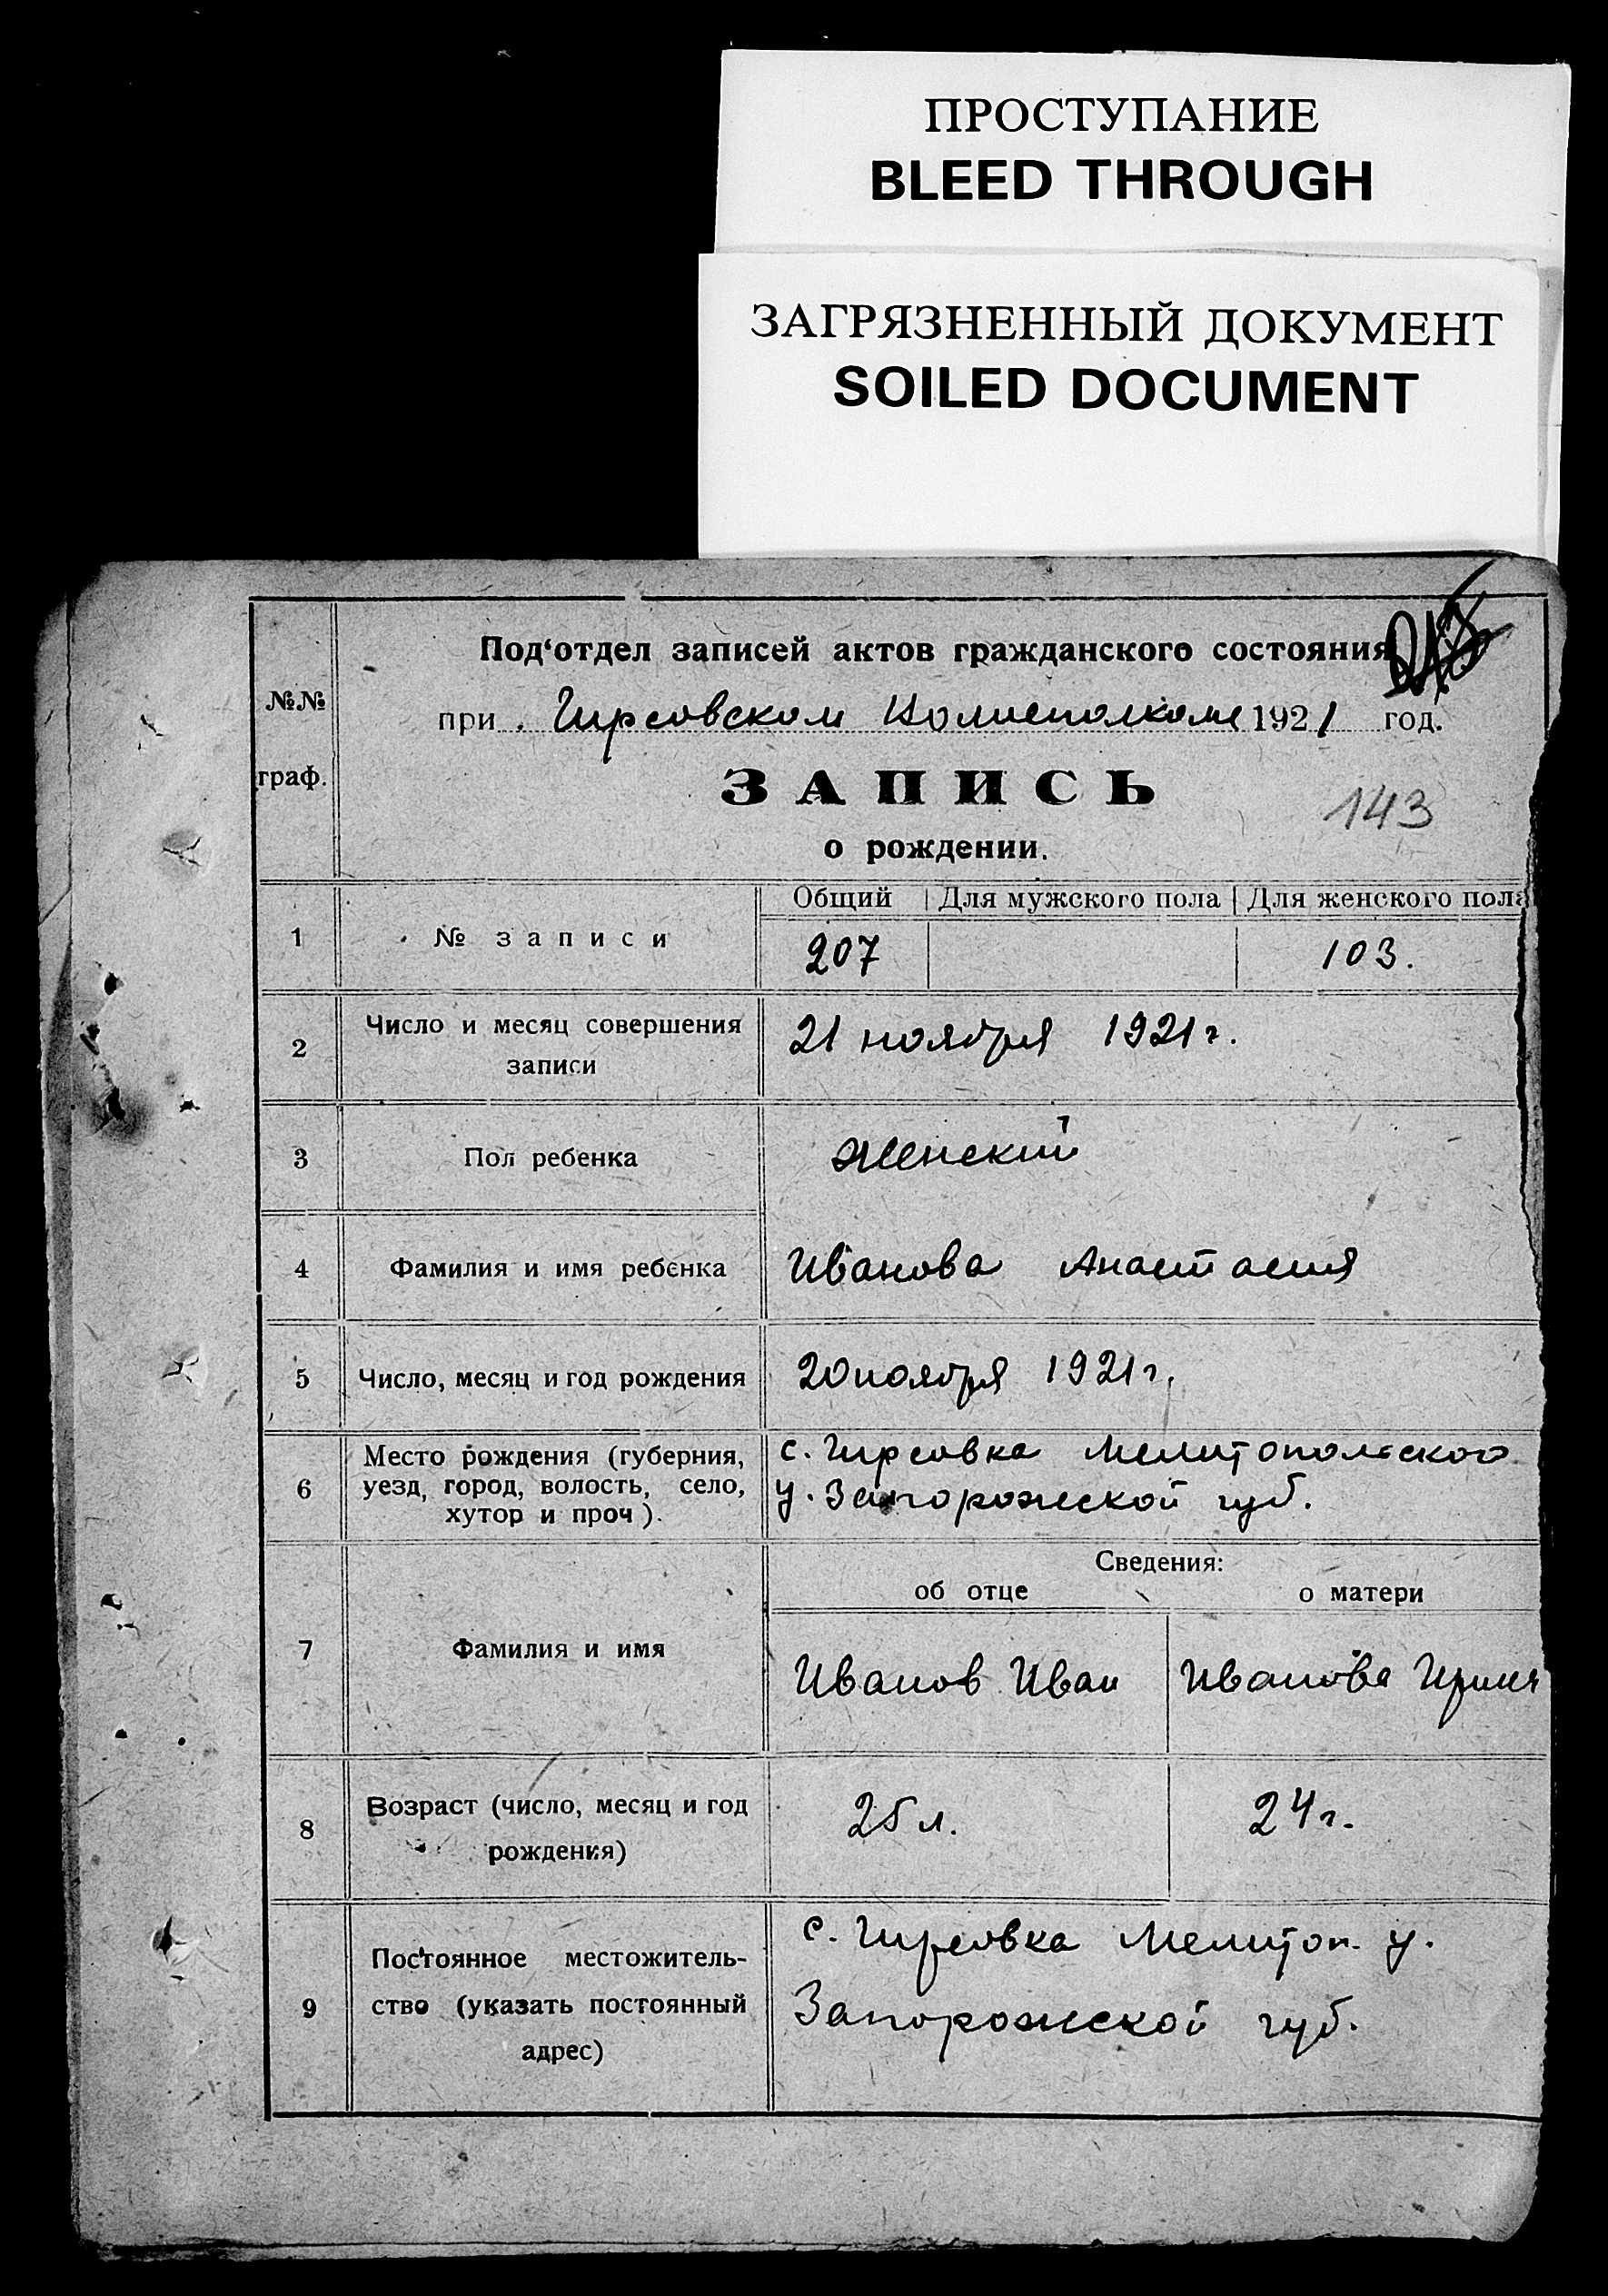 ПРОСТУПАНИЕ
BLEED THROUGH
ЗАГРЯЗНЕННЫЙ ДОКУМЕНТ
SOILED DOCUMENT
№№
граф.
Под‘отдел записей актов гражданского состояния
при Гирсовском Волисполкоме 1921 год.
ЗАПИСЬ
143
о рождении.
1
№ записи
Общий Для мужского пола Для женского пола
207 103.
2
Число и месяц совершения
записи
21 ноября 1921 г.
3
Пол ребенка
Женский
4
Фамилия и имя ребенка
Иванова Анастасия
5
Число, месяц и год рождения
20 ноября 1921 г.
6
Место рождения (губерния,
уезд, город, волость, село,
хутор и проч).
с. Гирсовка Мелитопольского
у. Запорожской губ.
7
Фамилия и имя
Сведения:
об отце о матери
Иванов Иван Иванова Ирина
8
Возраст (число, месяц и год
рождения)
25 л. 24 г.
9
Постоянное местожитель-
ство (указать постоянный
адрес)
с. Гирсовка Мелитоп. у.
Запорожской губ.